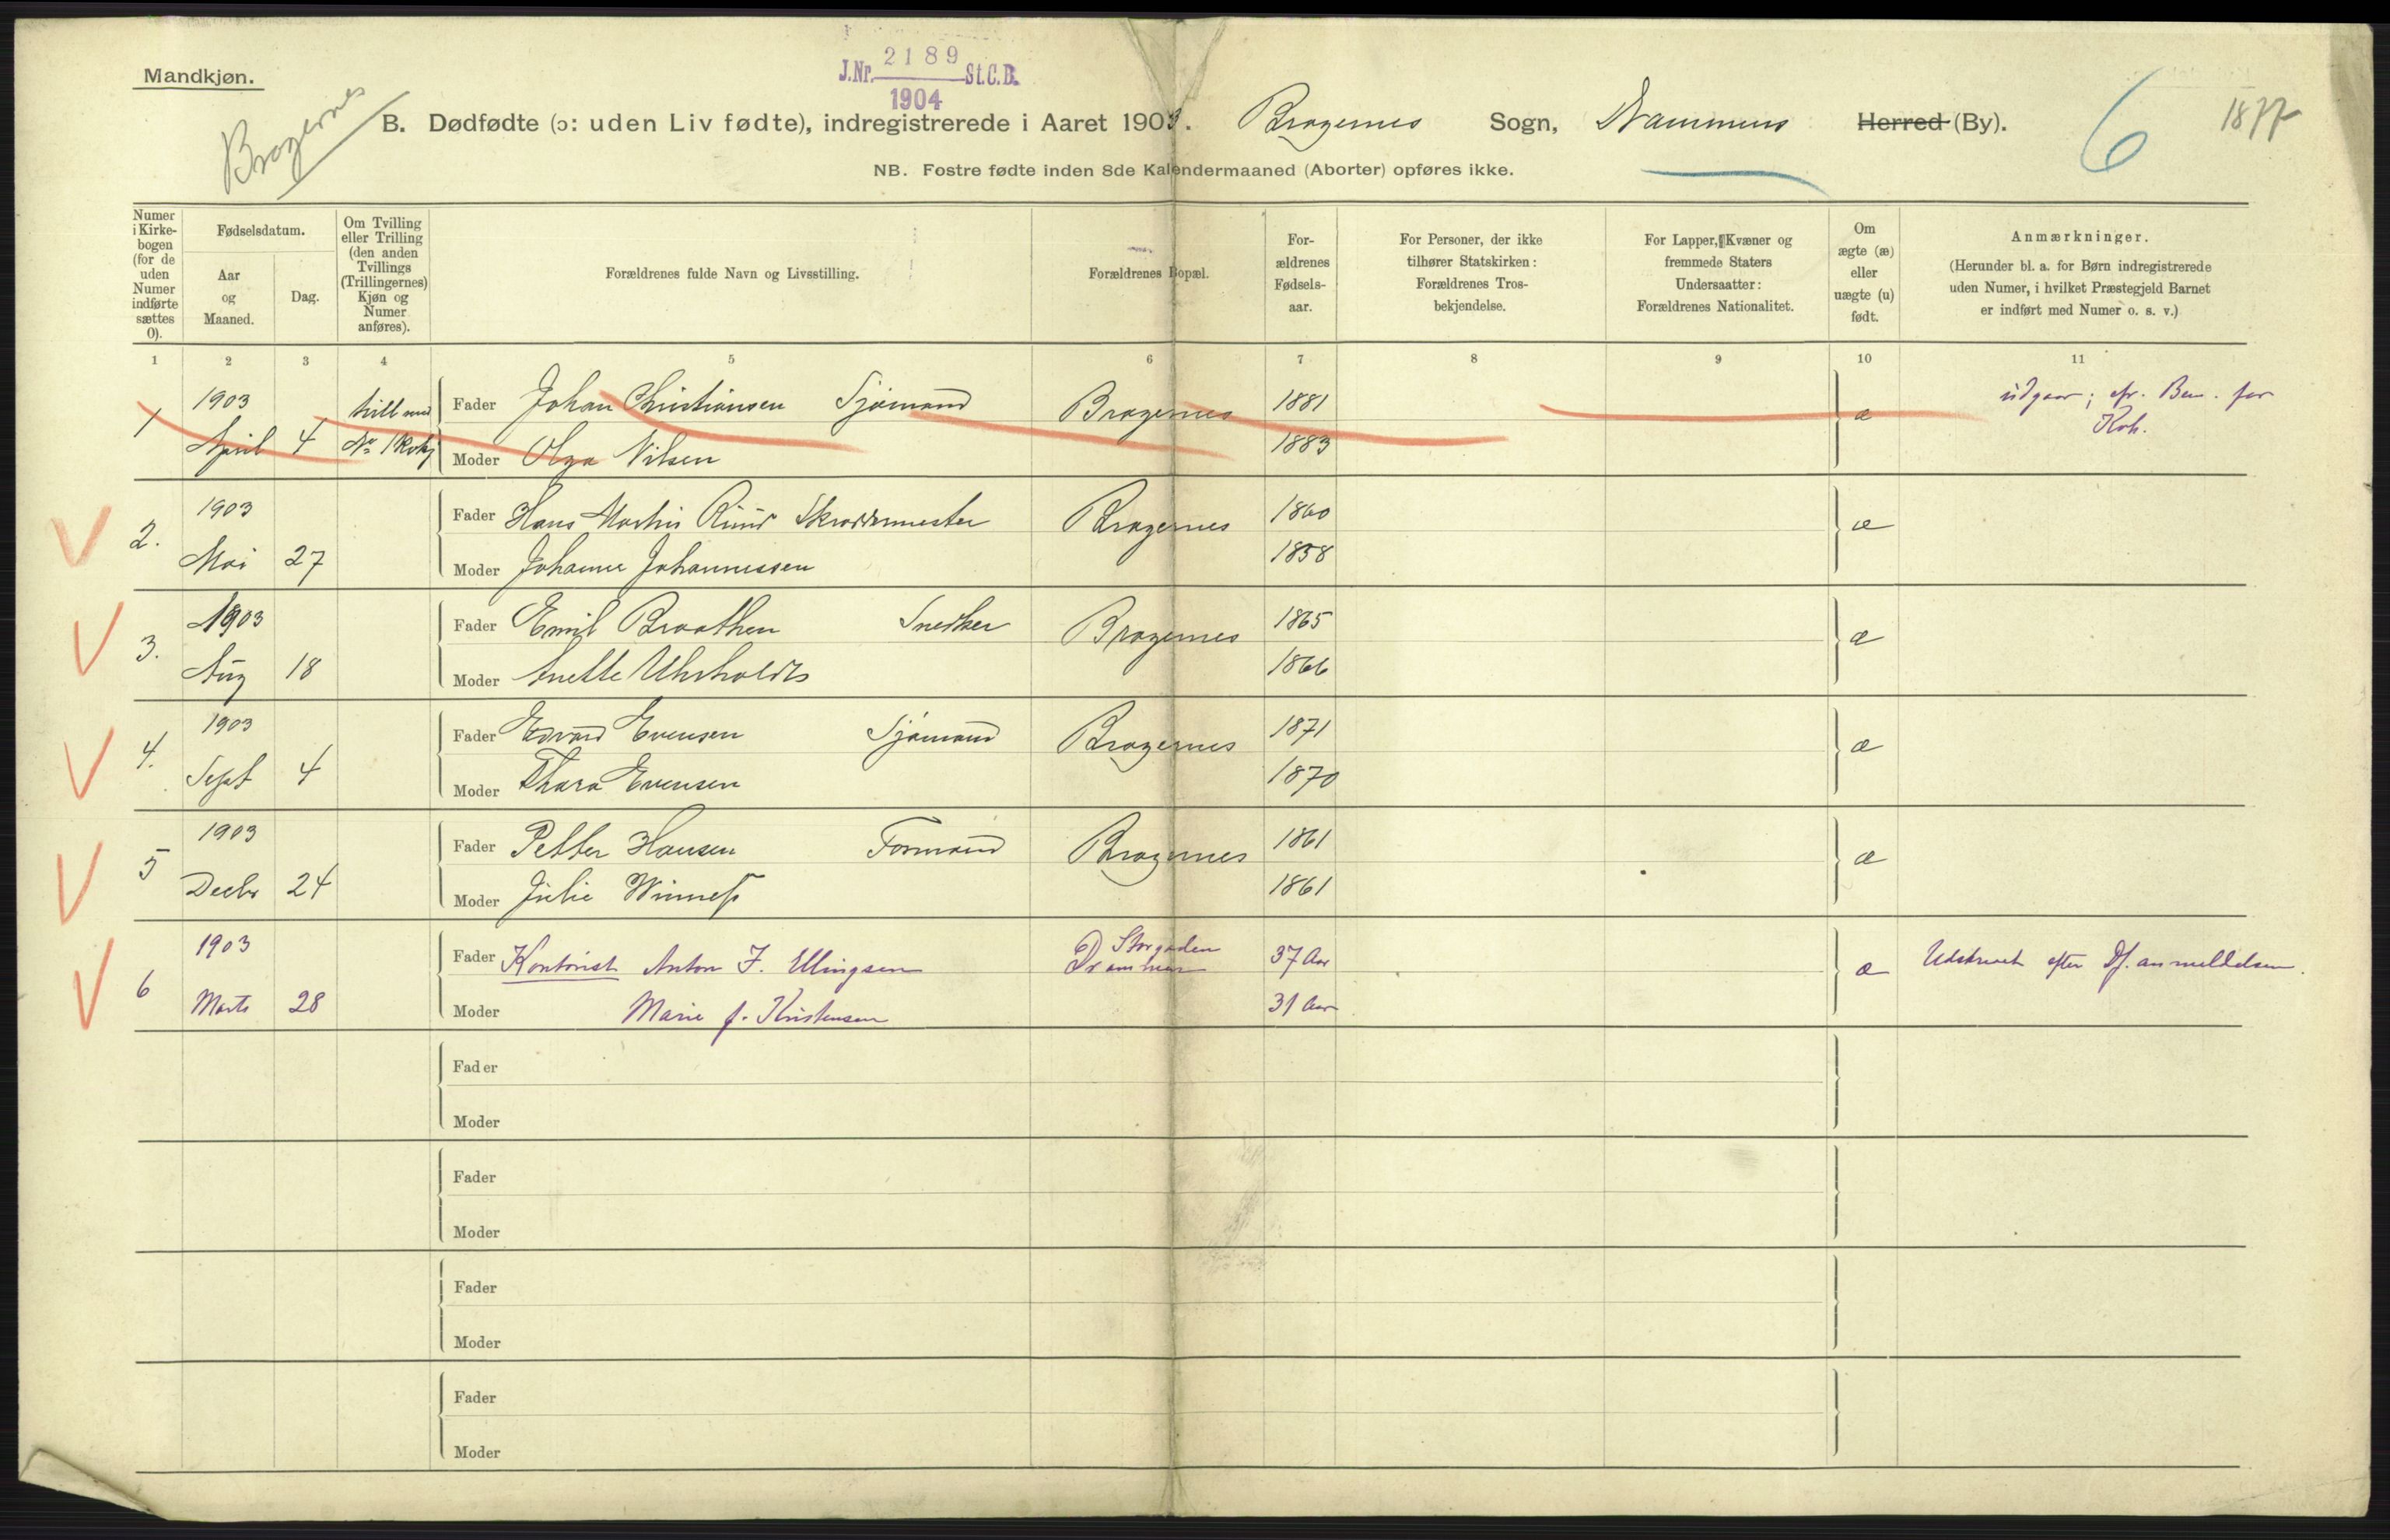 J.Nr. 2189 St.C.B.
1904
Mandkjøn.
Bragernes
B. Dødfødte (ɔ: uden Liv fødte), indregistrerede i Aaret 1903. Bragernes Sogn, Drammens Herred (By). 6 1877
NB. Fostre fødte inden 8de Kalendermaaned (Aborter) opføres ikke.
Numer i Kirke-bogen (for de uden Numer indførte sættes 0).
Fødselsdatum.
Aar og Maaned.
Dag.
Om Tvilling eller Trilling (den anden Tvillings (Trillingernes) Kjøn og Numer anføres).
Forældrenes fulde Navn og Livsstilling.
Forældrenes Bopæl.
For-ældrenes Fødsels-aar.
For Personer, der ikke tilhører Statskirken: Forældrenes Tros-bekjendelse.
For Lapper, Kvæner og fremmede Staters Undersaatter: Forældrenes Nationalitet.
Om ægte (æ) eller uægte (u) født.
Anmærkninger.
(Herunder bl. a. for Børn indregistrerede uden Numer, i hvilket Præstegjeld Barnet er indført med Numer o. s. v.)
1 2 3 4 5 6 7 8 9 10 11
1903 Fader Johan Christiansen Sjømand Bragernes 1881 æ udgaar; cfr. Bem. for
1 April 4 No 1 Moder Olga Nilsen 1883 Kvk.
1903 Fader Hans Martin Ruud Skræddermester Bragernes 1860 æ
2. Mai 27 Moder Johanne Johannessen 1858
1903 Fader Emil Braathen Snedker Bragernes 1865 æ
3. Aug 18 Moder Anette Uhrholdts 1866
1903 Fader Edvard Evensen Sjømand Bragernes 1871 æ
4. Sept 4 Moder Thora Evensen 1870
1903 Fader Petter Hansen Formand Bragernes 1861 æ
5 Decbr 24 Moder Julie Winness 1861
1903 Fader Kontorist Anton F. Ellingsen Storgaden Drammen 37 Aar æ Udskrevet efter Df. anmeldelsen.
6 Marts 28 Moder Marie f. Kristensen 31 Aar
Fader
Moder
Fader
Moder
Fader
Moder
Fader
Moder